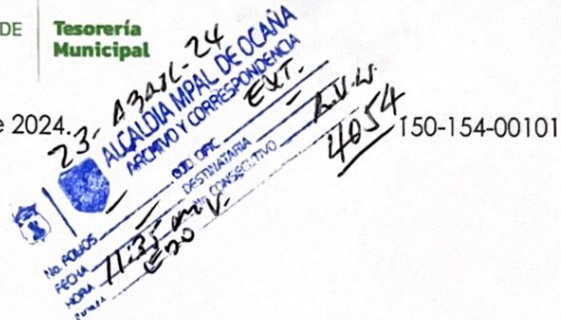 DE
Tesorería
Municipal
e 2024.
150-154-00101
23-ABRIL-24
ALCALDIA MPAL DE OCAÑA
ARCHIVO Y CORRESPONDENCIA
EXT.
DESTINATARIA
CONSECUTIVO
4054
No. FOLIOS
FECHA
HORA 11:35 am